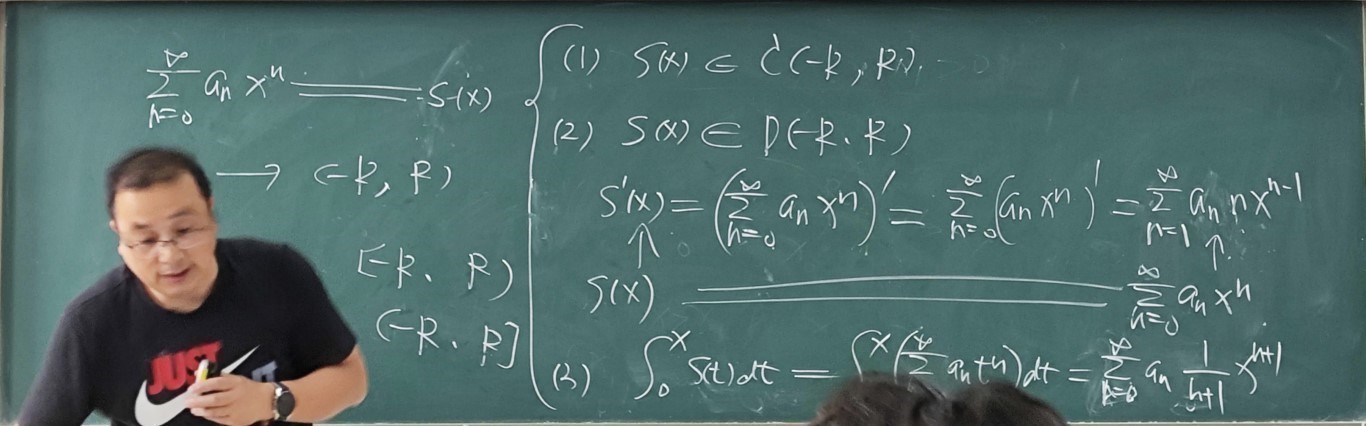 ∑_{n=0}^{∞} a_n x^n ═══ S(x)
→ (-R, R)
[-R, R)
(-R, R]
(1) S(x) ∈ C(-R, R).
(2) S(x) ∈ D(-R, R)
S'(x) = (∑_{n=0}^{∞} a_n x^n)' = ∑_{n=0}^{∞} (a_n x^n)' = ∑_{n=1}^{∞} a_n n x^{n-1}
↑ ↑
S(x) ═══ ∑_{n=0}^{∞} a_n x^n
(3) ∫_0^x S(t) dt = ∫^x (∑^{∞} a_n t^n) dt = ∑_{n=0}^{∞} a_n \frac{1}{n+1} x^{n+1}
JUST
IT